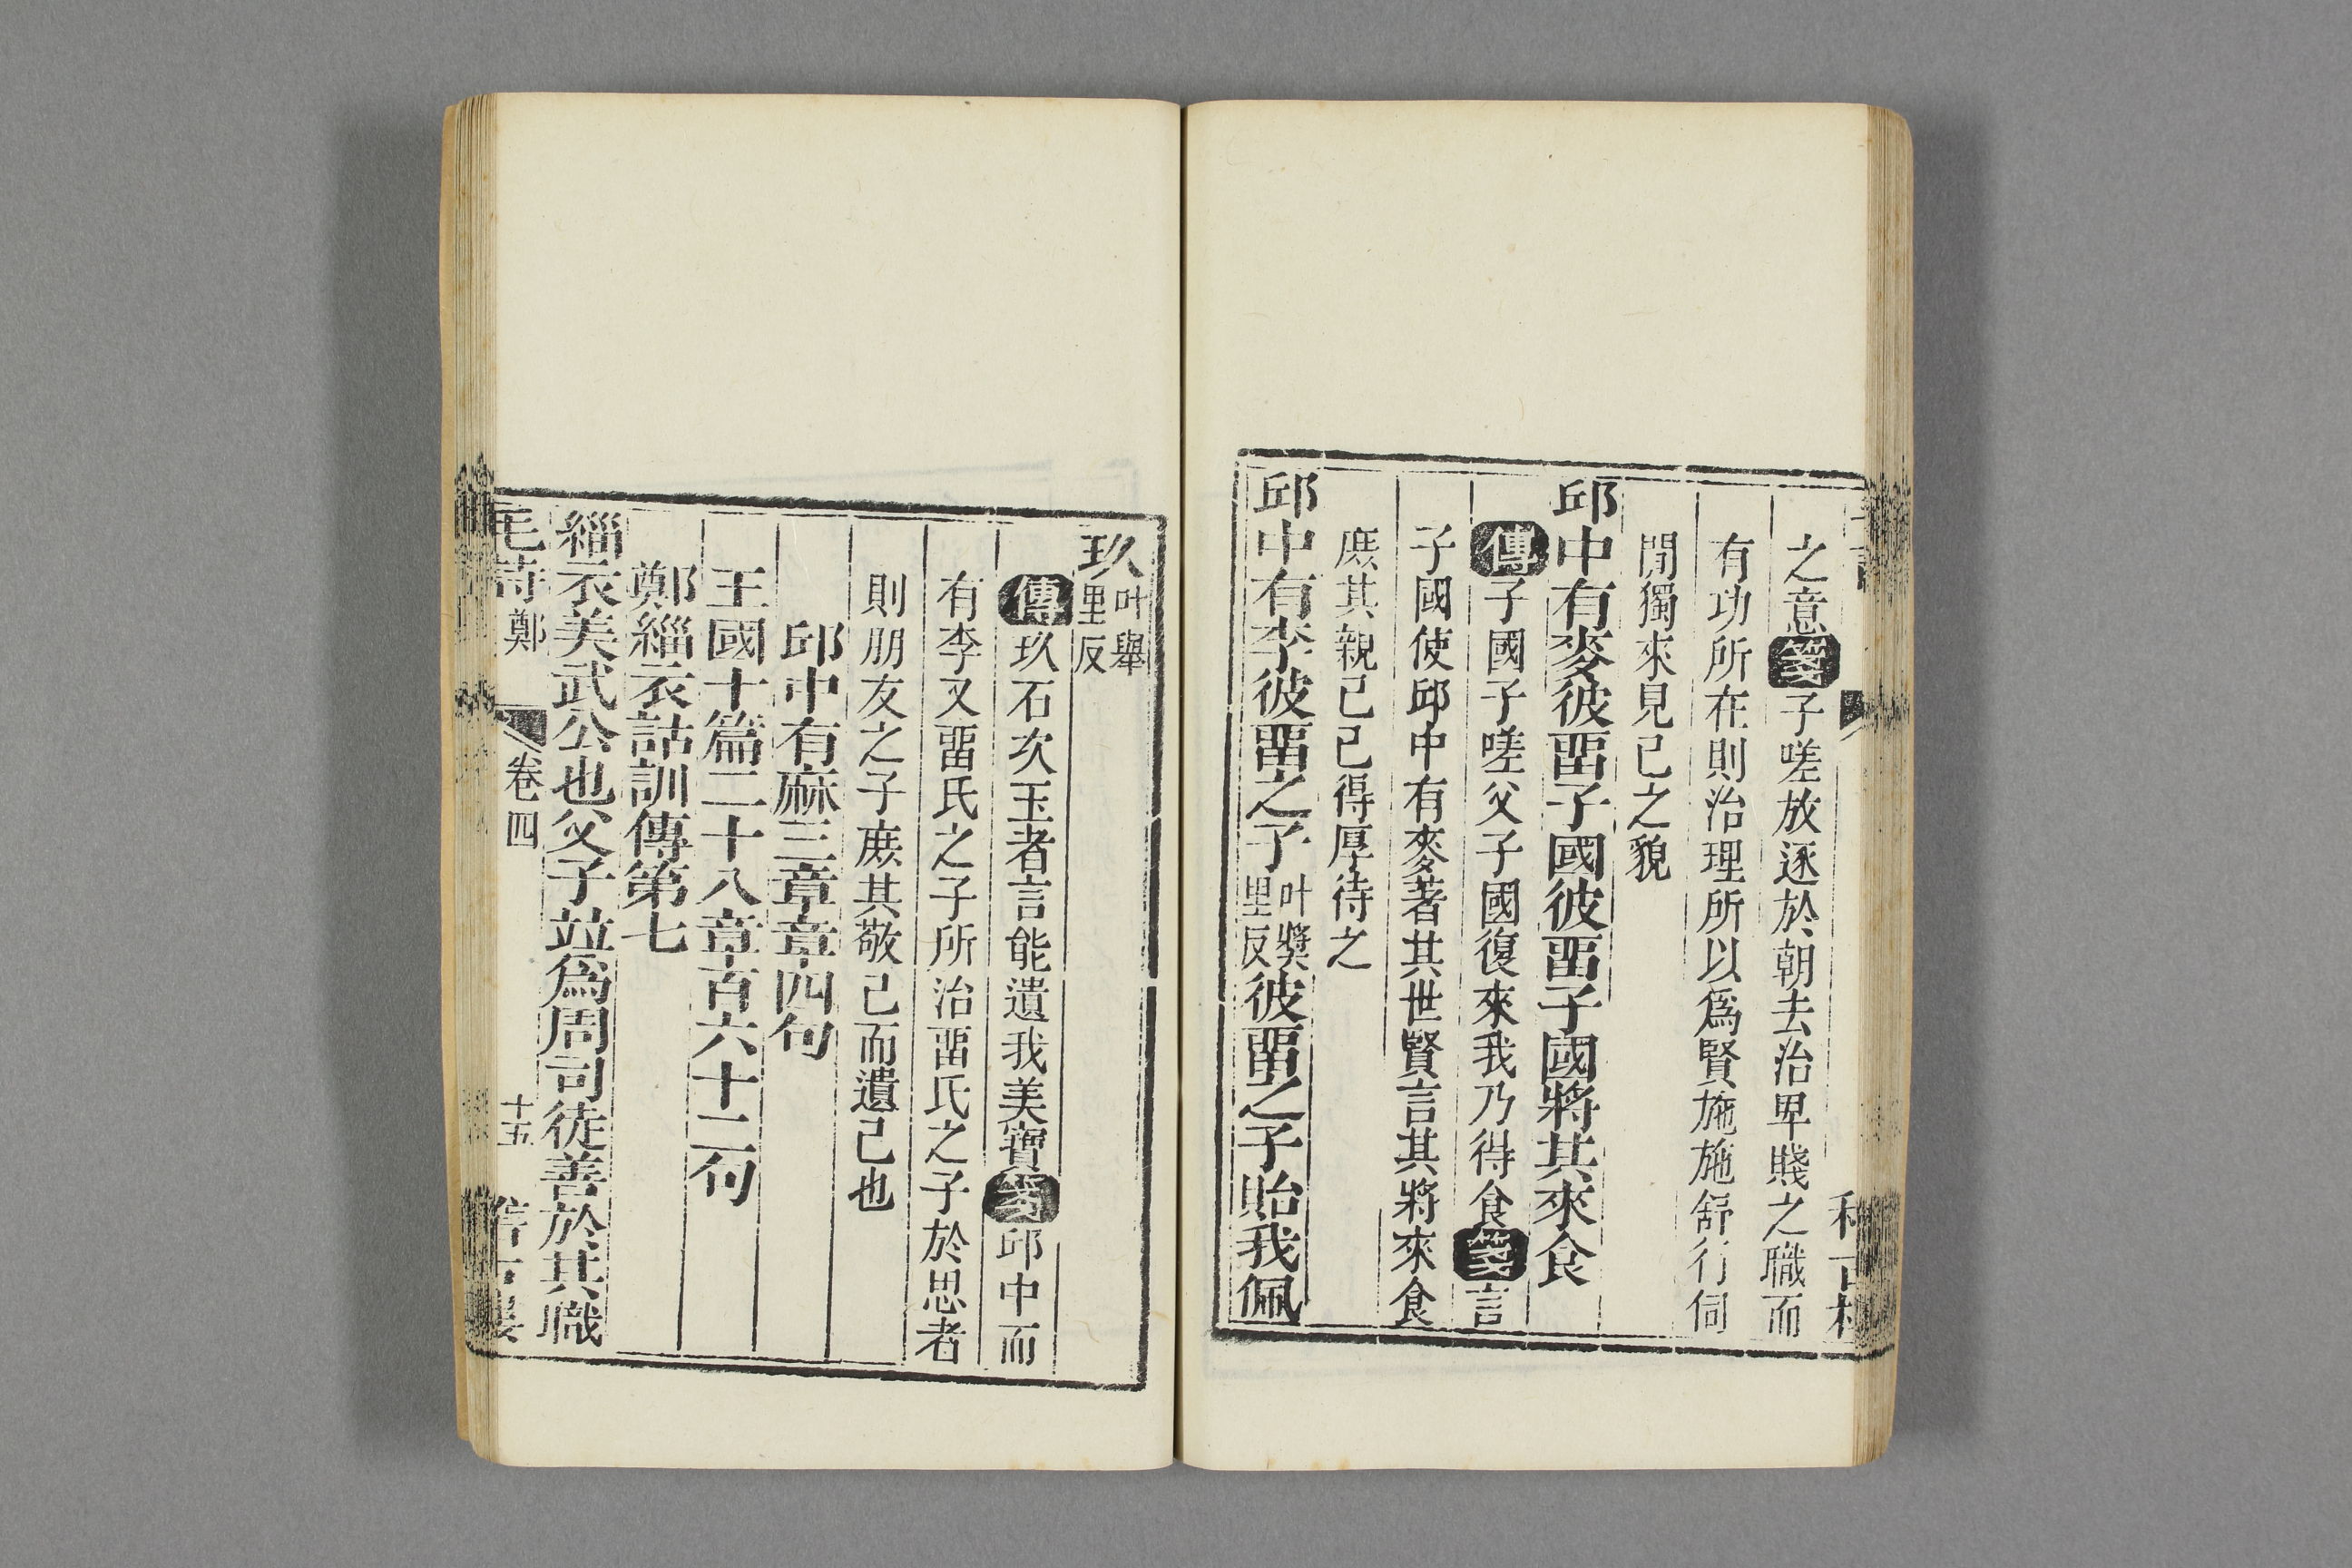 之意箋子嗟放逐於朝去治卑賤之職而
有功所在則治理所以爲賢施施舒行伺
閒獨來見己之貌
邱中有麥彼畱子國彼畱子國將其來食
傳子國子嗟父子國復來我乃得食箋言
子國使邱中有麥著其世賢言其將來食
庶其親己己得厚待之
邱中有李彼畱之子叶獎里反彼畱之子貽我佩
玖叶舉里反
傳玖石次玉者言能遺我美寶箋邱中而
有李又畱氏之子所治畱氏之子於思者
則朋友之子庶其敬己而遺己也
邱中有麻三章章四句
王國十篇二十八章百六十二句
鄭緇衣詁訓傳第七
緇衣美武公也父子竝爲周司徒善於其職
毛詩 鄭 卷四 十五